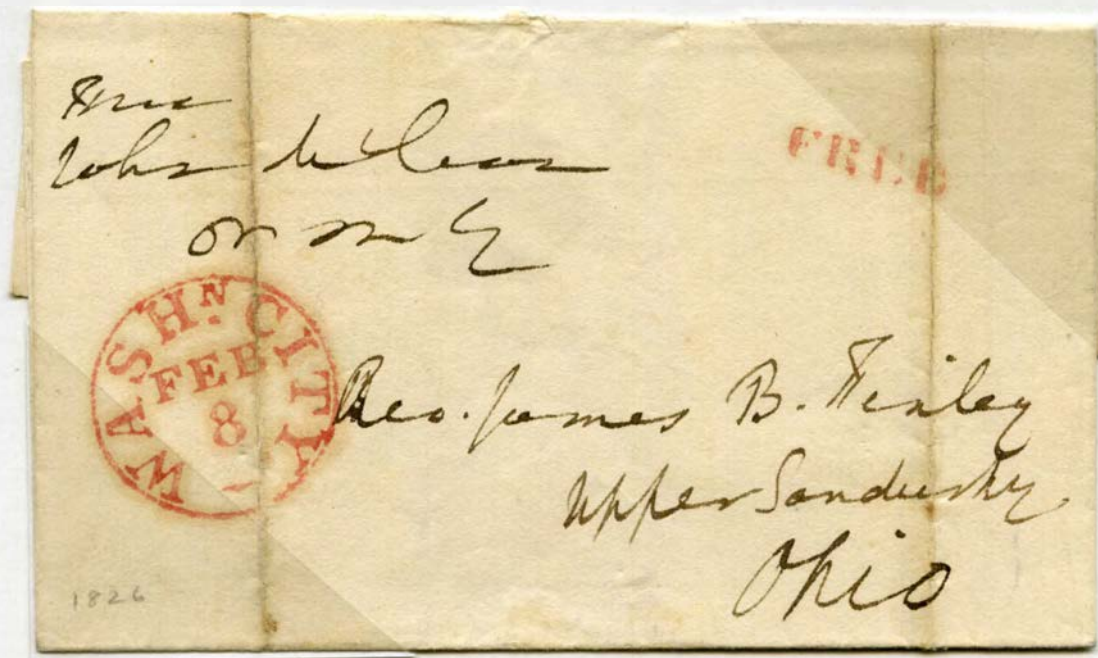 Free
John McLean
FREE
WASHN CITY
FEB
8
Rev. James B. Finley
Upper Sandusky.
Ohio
1826